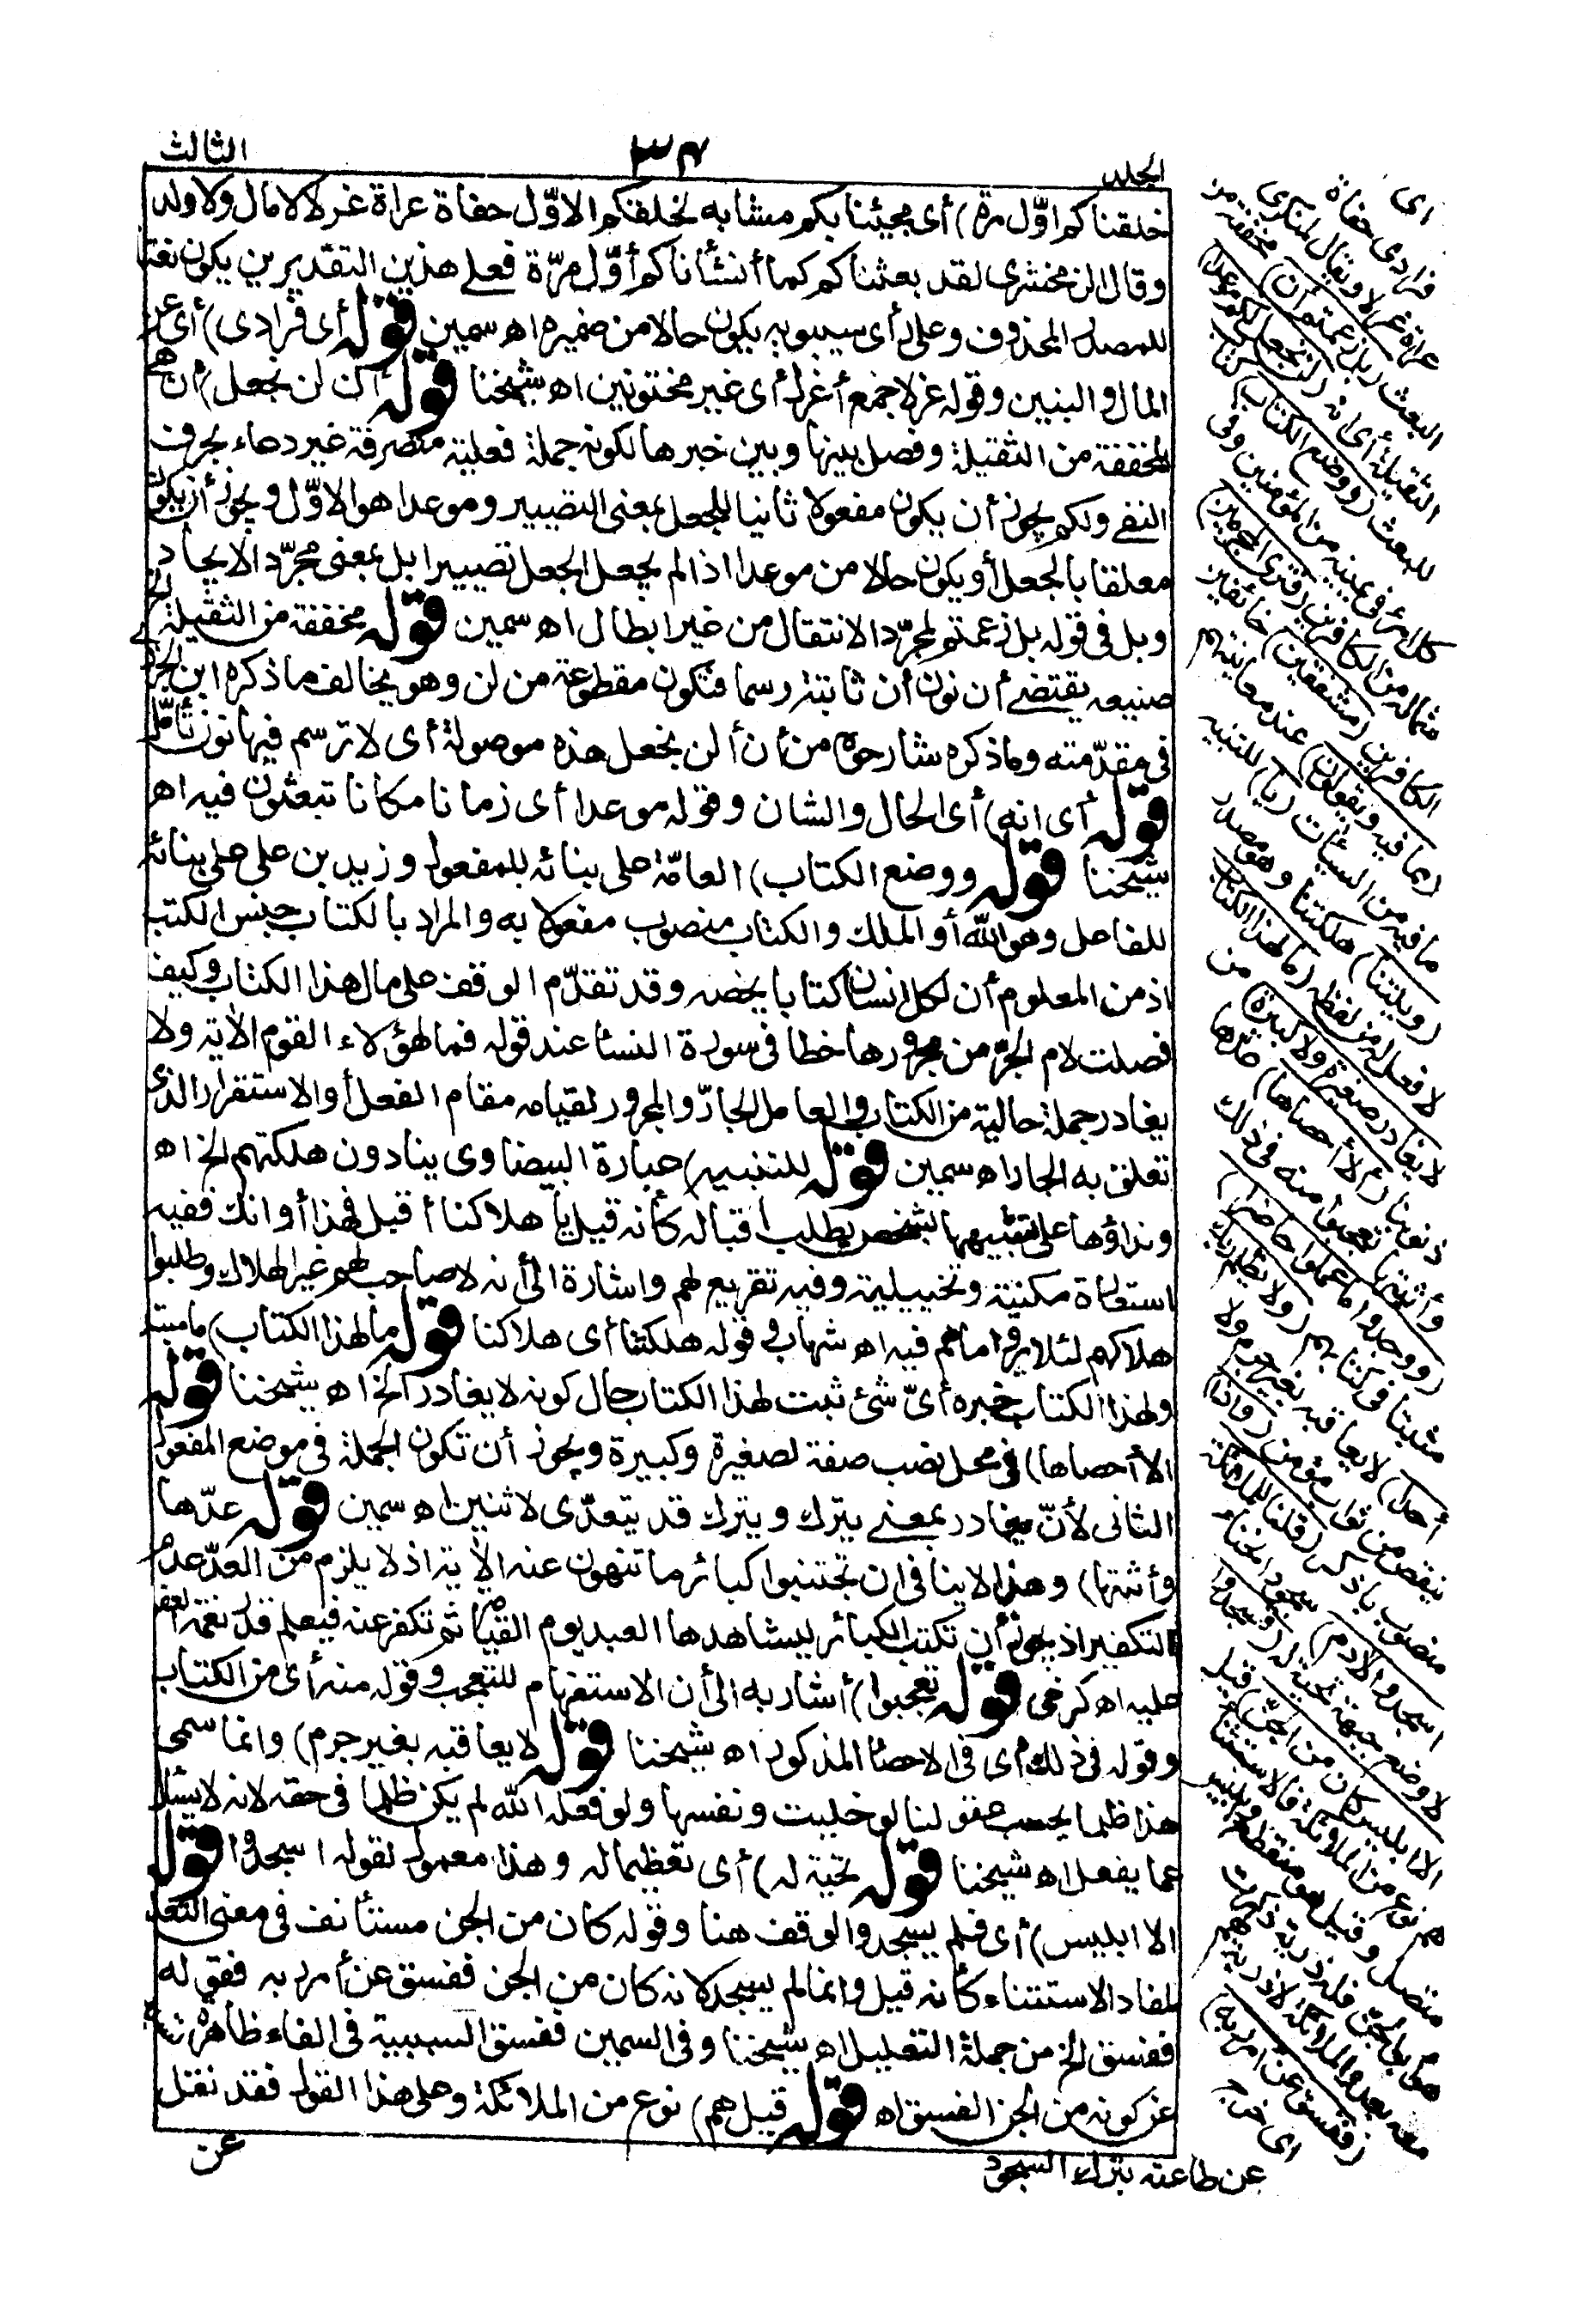 الجلد
٣٤
الثالث
خلقناكم اوّل مرة) أى مجيئنا بكم مشابه لخلقكم الاوّل حفاة عراة غرلا لا مال ولا ولد
وقال الزمخشرى لقد بعثناكم كما أنشأناكم أوّل مرّة فعلى هذين التقديرين يكون نعتا
للمصدر المحذوف وعلى رأى سيبويه يكون حالا من ضميره اه سمين قوله أى فرادى) أى عن
المال والبنين وقوله غرلا جمع أغرل أى غير مختونين اه شيخنا قوله أن لن نجعل) أن هى
المخففة من الثقيلة وفصل بينها وبين خبرها لكونه جملة فعلية متصرفة غير دعاء بحرف
النفى ولكم يجوز أن يكون مفعولا ثانيا للجعل بمعنى التصيير وموعدا هو الاوّل ويجوز أن يكون
معلقا بالجعل أو يكون حالا من موعدا اذا لم يجعل الجعل تصييرا بل بمعنى مجرّد الايجاد
وبل فى قوله بل زعمتم لمجرّد الانتقال من غير ابطال اه سمين قوله مخففة من الثقيلة الخ
صنيعه يقتضى أن نون أن ثابتة رسما فتكون مقطوعة من لن وهو يخالف ما ذكره ابن الجزرى
فى مقدّمته وما ذكره شارحوه من أن ألن نجعل هذه موصولة أى لا ترسم فيها نون تأمّل
قوله أى انه) أى الحال والشان وقوله موعدا أى زمانا مكانا تبعثون فيه اه
شيخنا قوله ووضع الكتاب) العامّة على بنائه للمفعول وزيد بن على على بنائه
للفاعل وهو الله أو الملك والكتاب منصوب مفعولا به والمراد بالكتاب جنس الكتب
اذ من المعلوم أن لكل انسان كتابا يخصه وقد تقدّم الوقف على مال هذا الكتاب وكيف
فصلت لام الجرّ من مجرورها خطا فى سورة النساء عند قوله فمال هؤلاء القوم الآية ولا
يغادر جملة حالية من الكتاب والعامل الجارّ والمجرور لقيامه مقام الفعل أو الاستقرار الذى
تعلق به الجار اه سمين قوله للتنبيه) عبارة البيضاوى ينادون هلكتهم الخ اه
ونداؤها على تشبيهها بشخص يطلب اقباله كأنه قيل يا هلاكنا أقبل فهذا أوانك ففيه
استعارة مكنية وتخييلية وفيه تقريع لهم واشارة الى أنه لا صاحب لهم غير الهلاك وطلبوا
هلاكهم لئلا يروا ما هم فيه اه شهاب فى قوله هلكتنا أى هلاكنا قوله ما لهذا الكتاب) ما مبتدأ
ولهذا الكتاب خبره أى شئ ثبت لهذا الكتاب حال كونه لا يغادر الخ اه شيخنا قوله
الا أحصاها) فى محل نصب صفة لصغيرة وكبيرة ويجوز أن تكون الجملة فى موضع المفعول
الثانى لأنّ يغادر بمعنى يترك ويترك قد يتعدّى لاثنين اه سمين قوله عدّها
وأثبتها) وهذا لا ينافى ان تجتنبوا كبائر ما تنهون عنه الآية اذ لا يلزم من العدّ عدم
التكفير اذ يجوز أن تكتب الكبائر ليشاهدها العبد يوم القيامة ثم تكفر عنه فيعلم قدر نعمة العفو
عليه اه كرخى قوله تعجبوا) أشار به الى أن الاستفهام للتعجب وقوله منه أى من الكتاب
وقوله فى ذلك أى فى الاحصاء المذكور اه شيخنا قوله لا يعاقبه بغير جرم) وانما سمى
هذا ظلما بحسب عقولنا لو خليت ونفسها ولو فعله الله لم يكن ظلما فى حقه لانه لا يسئل
عما يفعل اه شيخنا قوله تحية له) أى تعظيما له وهذا معمول لقوله اسجدوا قوله
الا ابليس) أى فلم يسجد والوقف هنا وقوله كان من الجن مستأنف فى معنى التعليل
لمفاد الاستثناء كأنه قيل وانما لم يسجد لانه كان من الجن ففسق عن أمر ربه فقوله
ففسق الخ من جملة التعليل اه شيخنا وفى السمين ففسق السببية فى الفاء ظاهرة
عن كونه من الجن الفسق اه قوله قيل هم) نوع من الملائكة وعلى هذا القول فقد نقل
عن
اى
فرادى حفاة
عراة غرلا ويقال لمنكرى
البعث (بل زعمتم أن) مخففة من
الثقيلة أى انه (لن نجعل لكم موعدا)
للبعث (ووضع الكتاب) كتاب
كل امرئ فى يمينه من المؤمنين وفى
شماله من الكافرين (فترى المجرمين)
الكافرين (مشفقين) خائفين
(مما فيه ويقولون) عند معاينتهم
ما فيه من السيئات (يا) للتنبيه
(ويلتنا) هلكتنا وهو مصدر
لا فعل له من لفظه (مال هذا الكتاب
لا يغادر صغيرة ولا كبيرة) من
ذنوبنا (الا أحصاها) عدّها
وأثبتها تعجبوا منه فى ذلك
(ووجدوا ما عملوا حاضرا)
مثبتا فى كتابهم (ولا يظلم ربك
أحدا) لا يعاقبه بغير جرم ولا
ينقص من ثواب مؤمن (واذ)
منصوب باذكر (قلنا للملائكة
اسجدوا لآدم) سجود انحناء
لا وضع جبهة تحية له (فسجدوا
الا ابليس كان من الجن) قيل
هم نوع من الملائكة فالاستثناء
متصل وقيل هو منقطع وابليس
هو أبو الجن فله ذرية ذكرت
معه بعد والملائكة لا ذرية لهم
(ففسق عن امر ربه)
اى خرج
عن طاعته بترك السجود